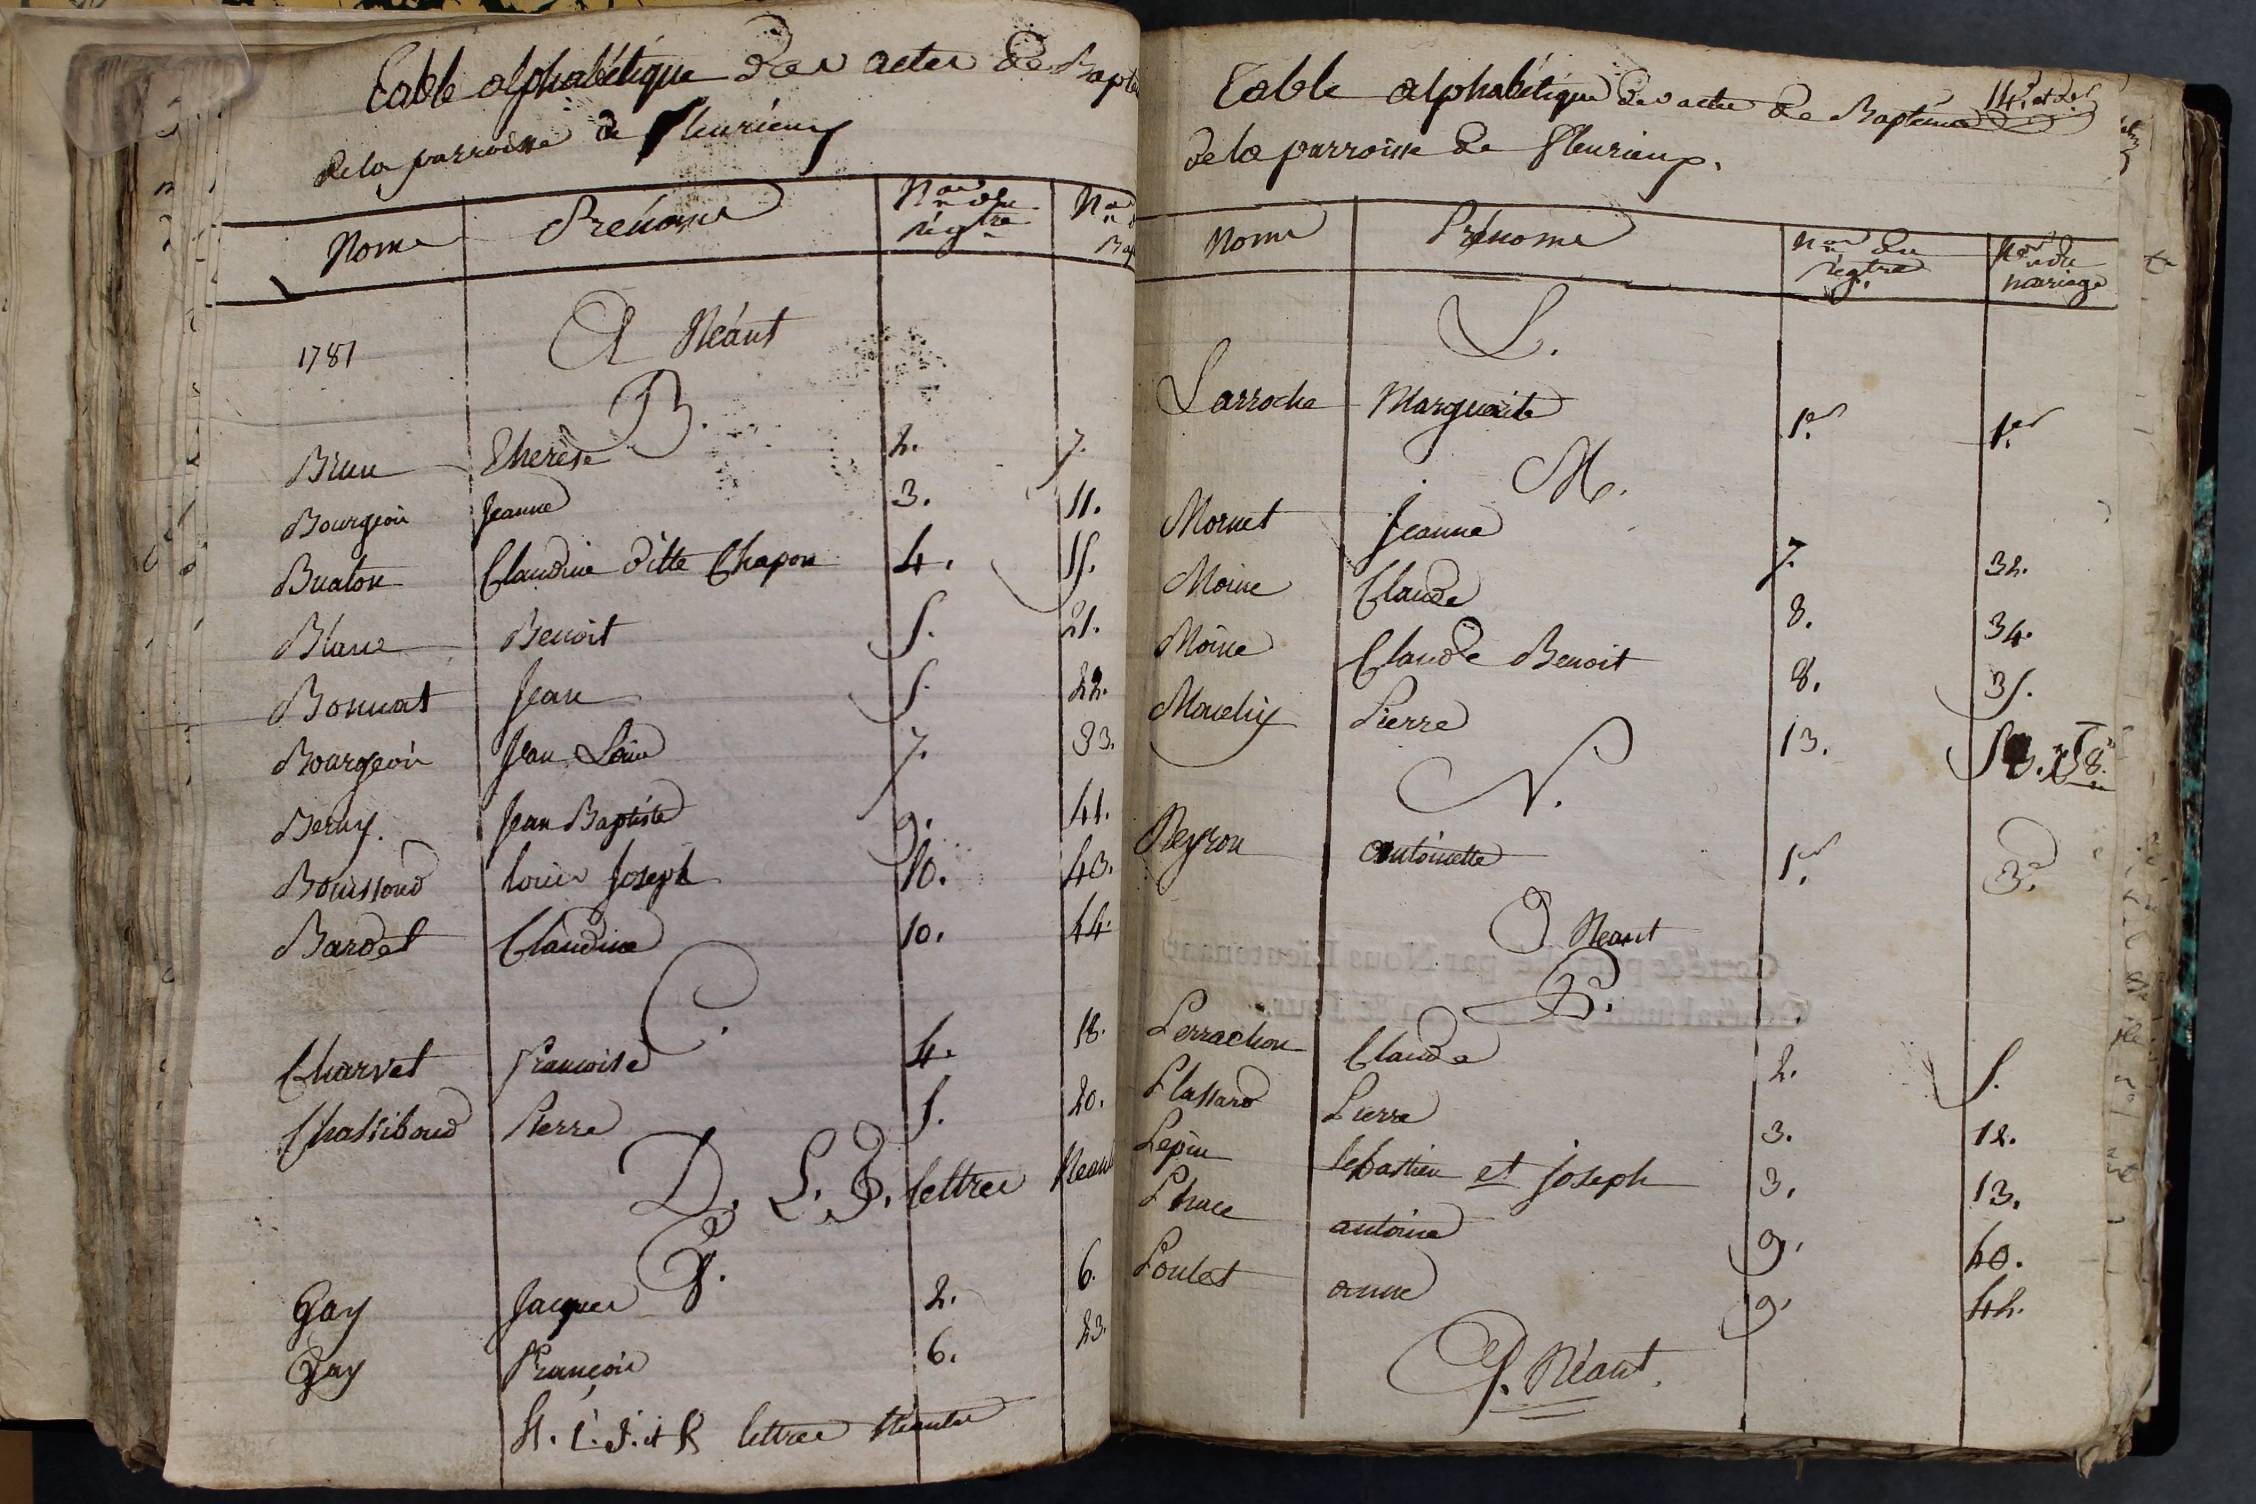 Table alphabétique des actes de Bapte
de la parroisse de fleurieux
Noms Prénoms Nos du régtre Nos d Bap
1781 A Néant
B.
Brun Therèse 2. 7.
Bourgeois Jeanne 3. 11.
Buaton Claudine ditte Chapon 4. 15.
Blanc Benoit 5. 21.
Bonnat Jean 5. 22.
Bourgeois Jean Louis 7. 33.
Berny. Jean Baptiste 9. 41.
Bouissoud louis Joseph 10. 43.
Bardet Claudine 10. 44.
C.
Charvet francoise 4. 18.
Chassiboud Pierre 5. 20.
D. E. F. lettres Neant
G.
Gay Jacques 2. 6.
Gay François 6. 23.
H. I. J. et K lettres Néantes
Table alphabétique des actes de Baptême
de la parroisse de fleurieux.
Noms Prénoms Nos du régtre Nos du mariage
L.
Larroche Marguerite 1er 1er
M.
Mornet Jeanne 7. 32.
Moine Claude 8. 34.
Moine Claude Benoit 8. 35.
Pierre 13. 58.
N.
Neyron antoinette 1er 3e
O Neant
P.
Perrachon Claude 2. 5.
Plassard Pierre 3. 12.
Lepin sebastien et joseph 3. 13.
antoine 9. 40.
Poulet anne 9. 42.
Q. Néant.